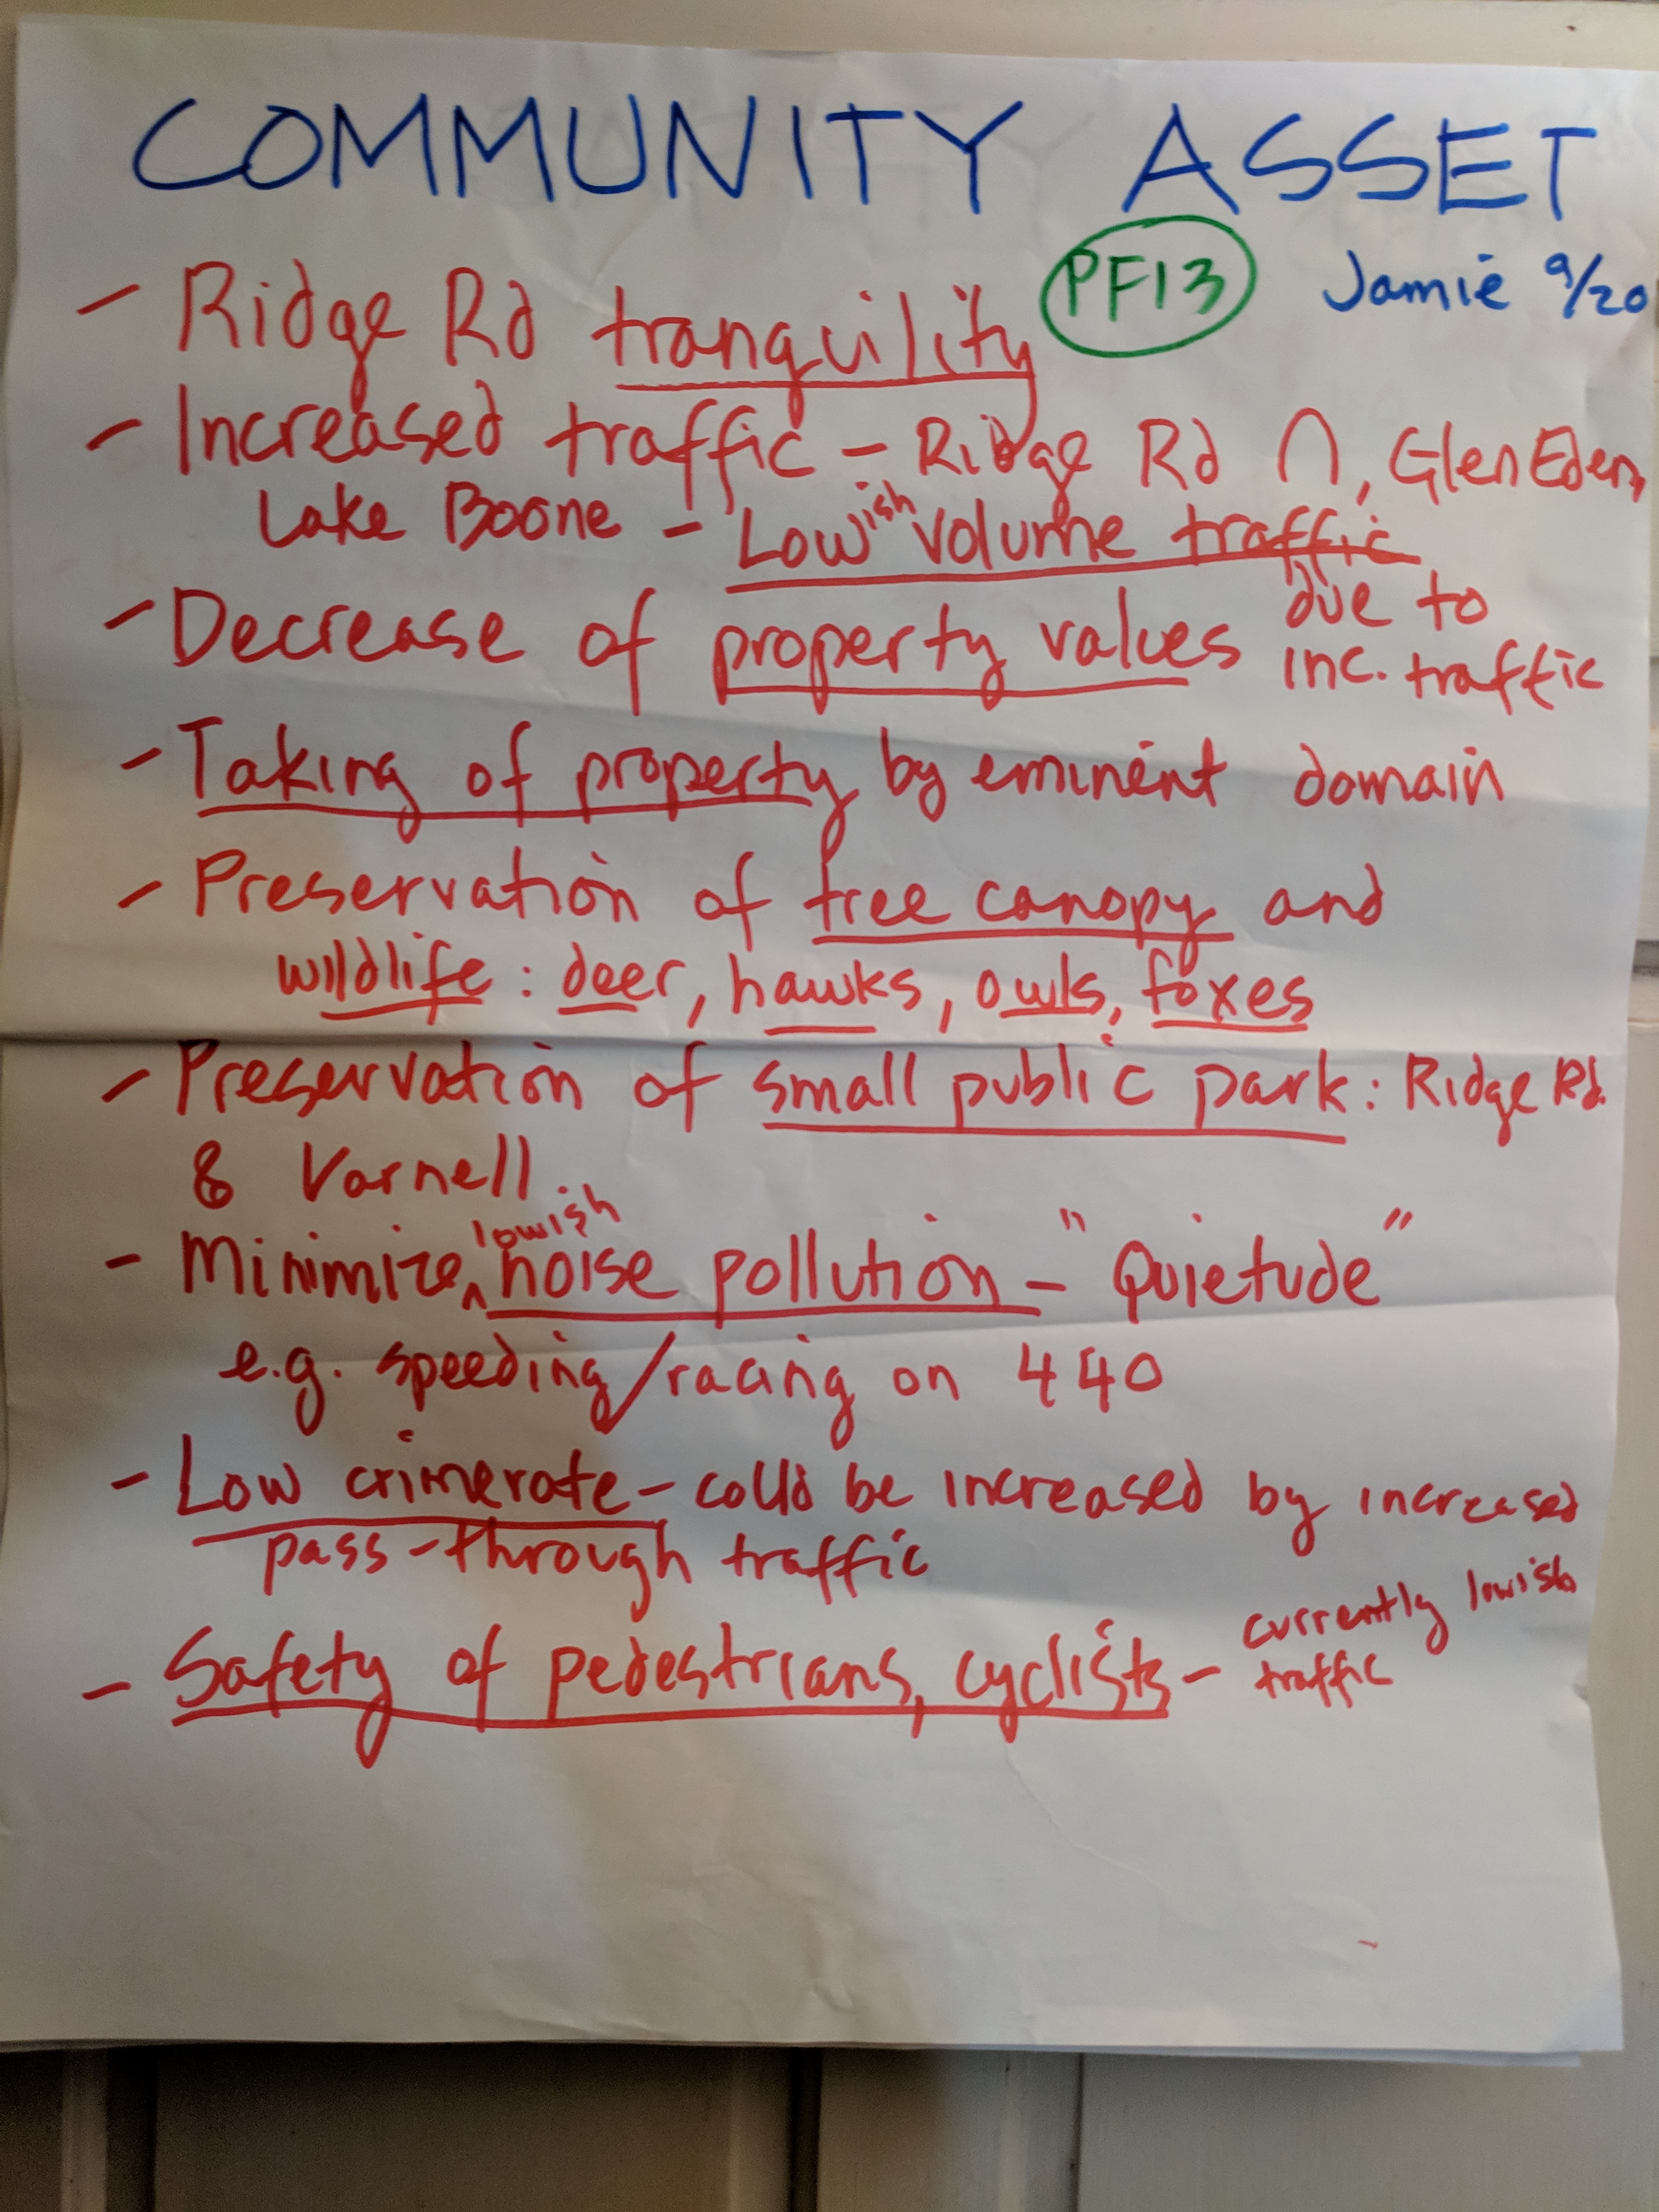 COMMUNITY ASSET
PF13 Jamie 9/20
- Ridge Rd tranquility
- Increased traffic - Ridge Rd ∩, Glen Eden,
Lake Boone - Lowish volume traffic
- Decrease of property values due to
inc. traffic
- Taking of property by eminent domain
- Preservation of tree canopy and
wildlife : deer, hawks, owls, foxes
- Preservation of small public park : Ridge Rd.
& Varnell
- Minimize lowish noise pollution - "Quietude"
e.g. speeding/racing on 440
- Low crimerate - could be increased by increased
pass-through traffic
- Safety of pedestrians, cyclists - currently lowish
traffic